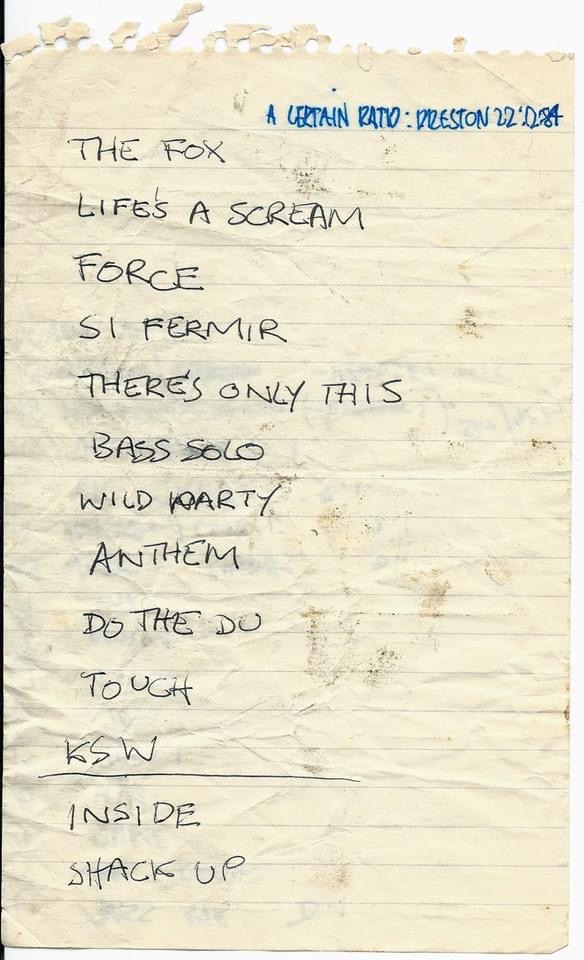 A CERTAIN RATIO: PRESTON 22·12·84
THE FOX
LIFE'S A SCREAM
FORCE
SI FERMIR
THERE'S ONLY THIS
BASS SOLO
WILD PARTY
ANTHEM
DO THE DU
TOUCH
KSW
INSIDE
SHACK UP